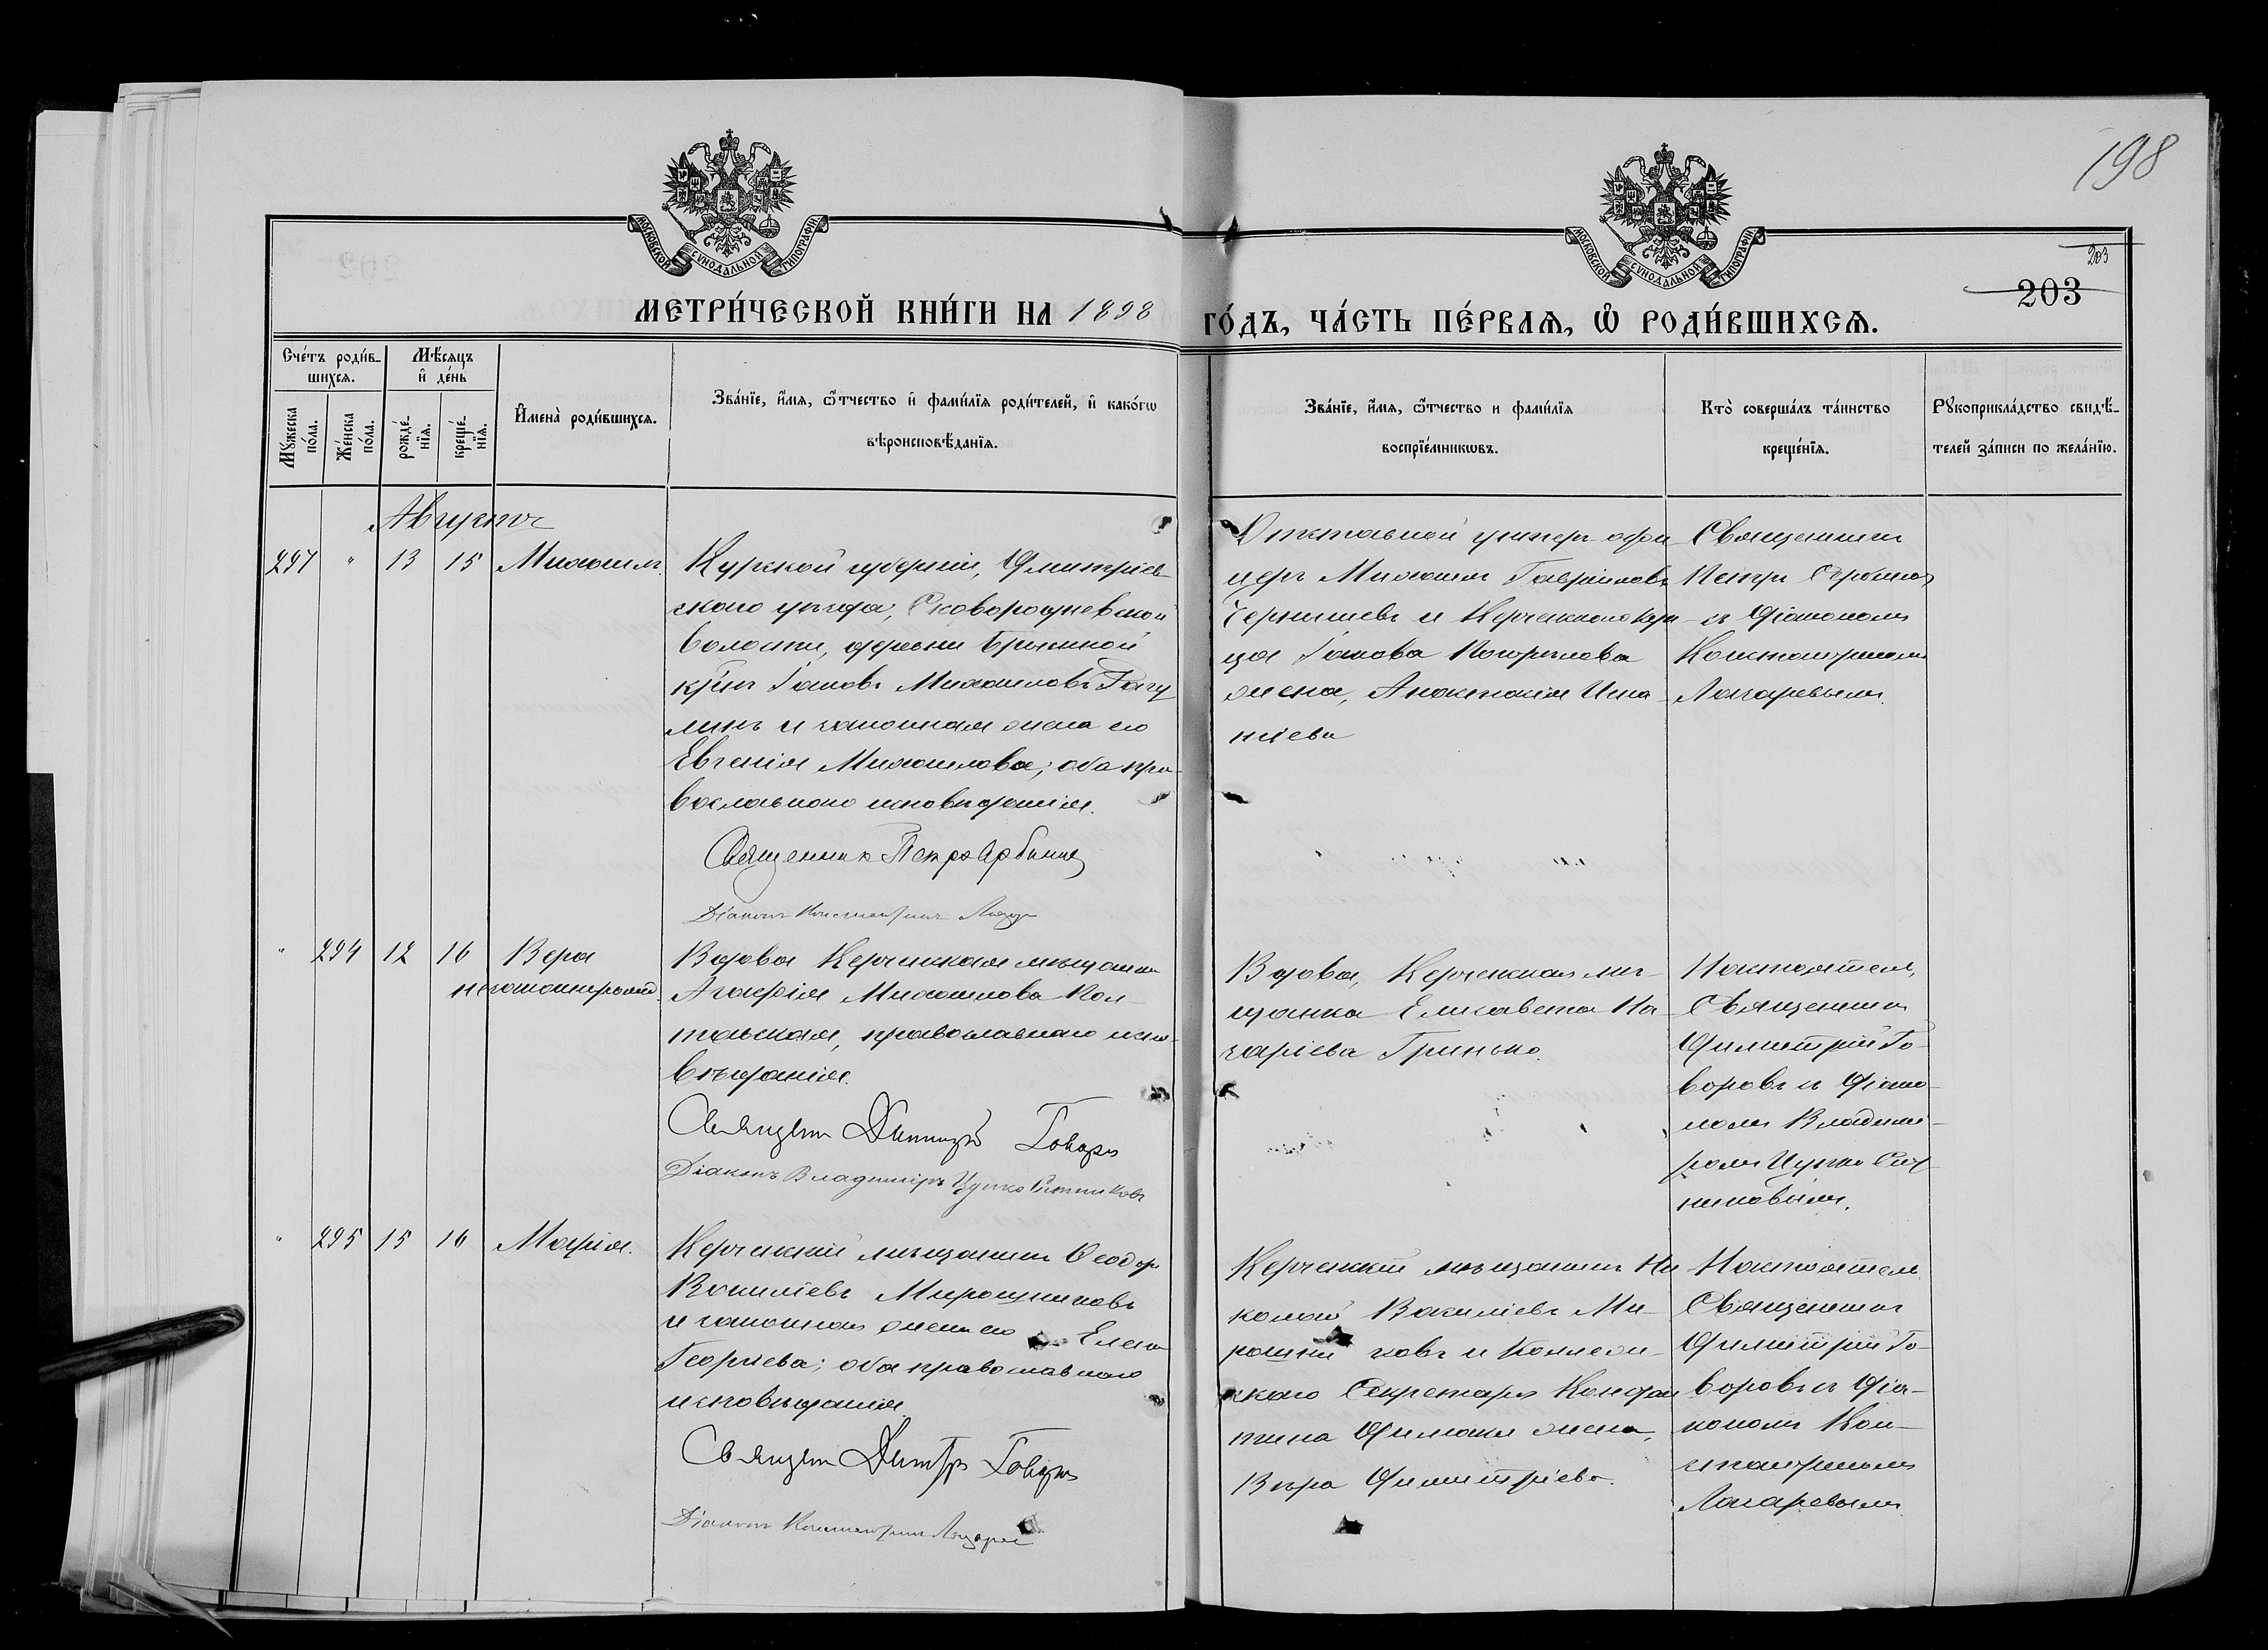 198
МОСКОВСКОЙ СѴНОДАЛЬНОЙ ТИПОГРАФІИ
МОСКОВСКОЙ СѴНОДАЛЬНОЙ ТИПОГРАФІИ
203
203
МЕТРИ́ЧЕСКОЙ КНИ́ГИ НА 1898 ГО́ДЪ, ЧА́СТЬ ПЕ́РВАѦ, Ѽ РОДИ́ВШИХСѦ.
Сче́тъ роди́в-
шихсѧ.
Мѣ́сѧцъ
и҆ де́нь
Мꙋ́жеска
по́ла.
Же́нска
по́ла.
рожде́-
нїѧ.
креще́-
нїѧ.
И҆мена̀ роди́вшихсѧ.
Зва́нїе, и҆́мѧ, ѻ҆́тчество и҆ фами́лїѧ роди́телей, и҆ како́гѡ
вѣроисповѣ́данїѧ.
Зва́нїе, и҆́мѧ, ѻ҆́тчество и фами́лїѧ
воспрїе́мникѡвъ.
Кто̀ соверша́лъ та́инство
креще́нїѧ.
Рꙋкоприкла́дство свидѣ́-
телей за́писи по жела́нїю.
Августъ
297 " 13 15 Михаилъ.
Курской губерніи, Дмитріев-
скаго уѣзда, Сковородневской
волости, деревни Брянной
кр-нъ Іаковъ Михаиловъ
и законная жена его
Евгенія Михаилова; оба пра-
вославнаго исповѣданія.
Священникъ Петръ Сербинов
Діаконъ Константинъ Лазар
Отставной унтеръ-офи-
церъ Михаилъ Гавріиловъ
Чернышевъ и Керченскаго куп-
ца Іакова Погорѣлова
жена, Анастасія Ина-
ніева
Священникъ
Петръ Сербинов
съ Діакономъ
Константиномъ
Лазаревымъ.
" 294 12 16 Вера
незаконнорожд.
Вдова Керченская мѣщанка
Агафія Михаилова Пол-
тавская, православнаго испо-
вѣданія.
Священ Димитрій Говоровъ
Діаконъ Владиміръ Цупко Ситниковъ
Вдова, Керченская мѣ-
щанка Елисавета На-
заріева Гринько.
Настоятель,
Священникъ
Димитрій Го-
воровъ съ Діако-
номъ Владимі-
ромъ Цупко Сит-
никовымъ.
" 295 15 16 Марія.
Керченскій мѣщанинъ Ѳеодоръ
Василіевъ Мирошниковъ
и законная жена его Елена
Георгіева; оба православнаго
исповѣданія
Священ Дмитрій Говоровъ
Діаконъ Константинъ Лазарев
Керченскій мѣщанинъ Ни-
колай Василіевъ Ми-
рошниковъ и Коллеж-
скаго Секретаря Констан-
тина жена,
Вѣра Димитріева.
Настоятель
Священникъ
Димитрій Го-
воровъ съ Діа-
кономъ Кон-
стантиномъ
Лазаревымъ